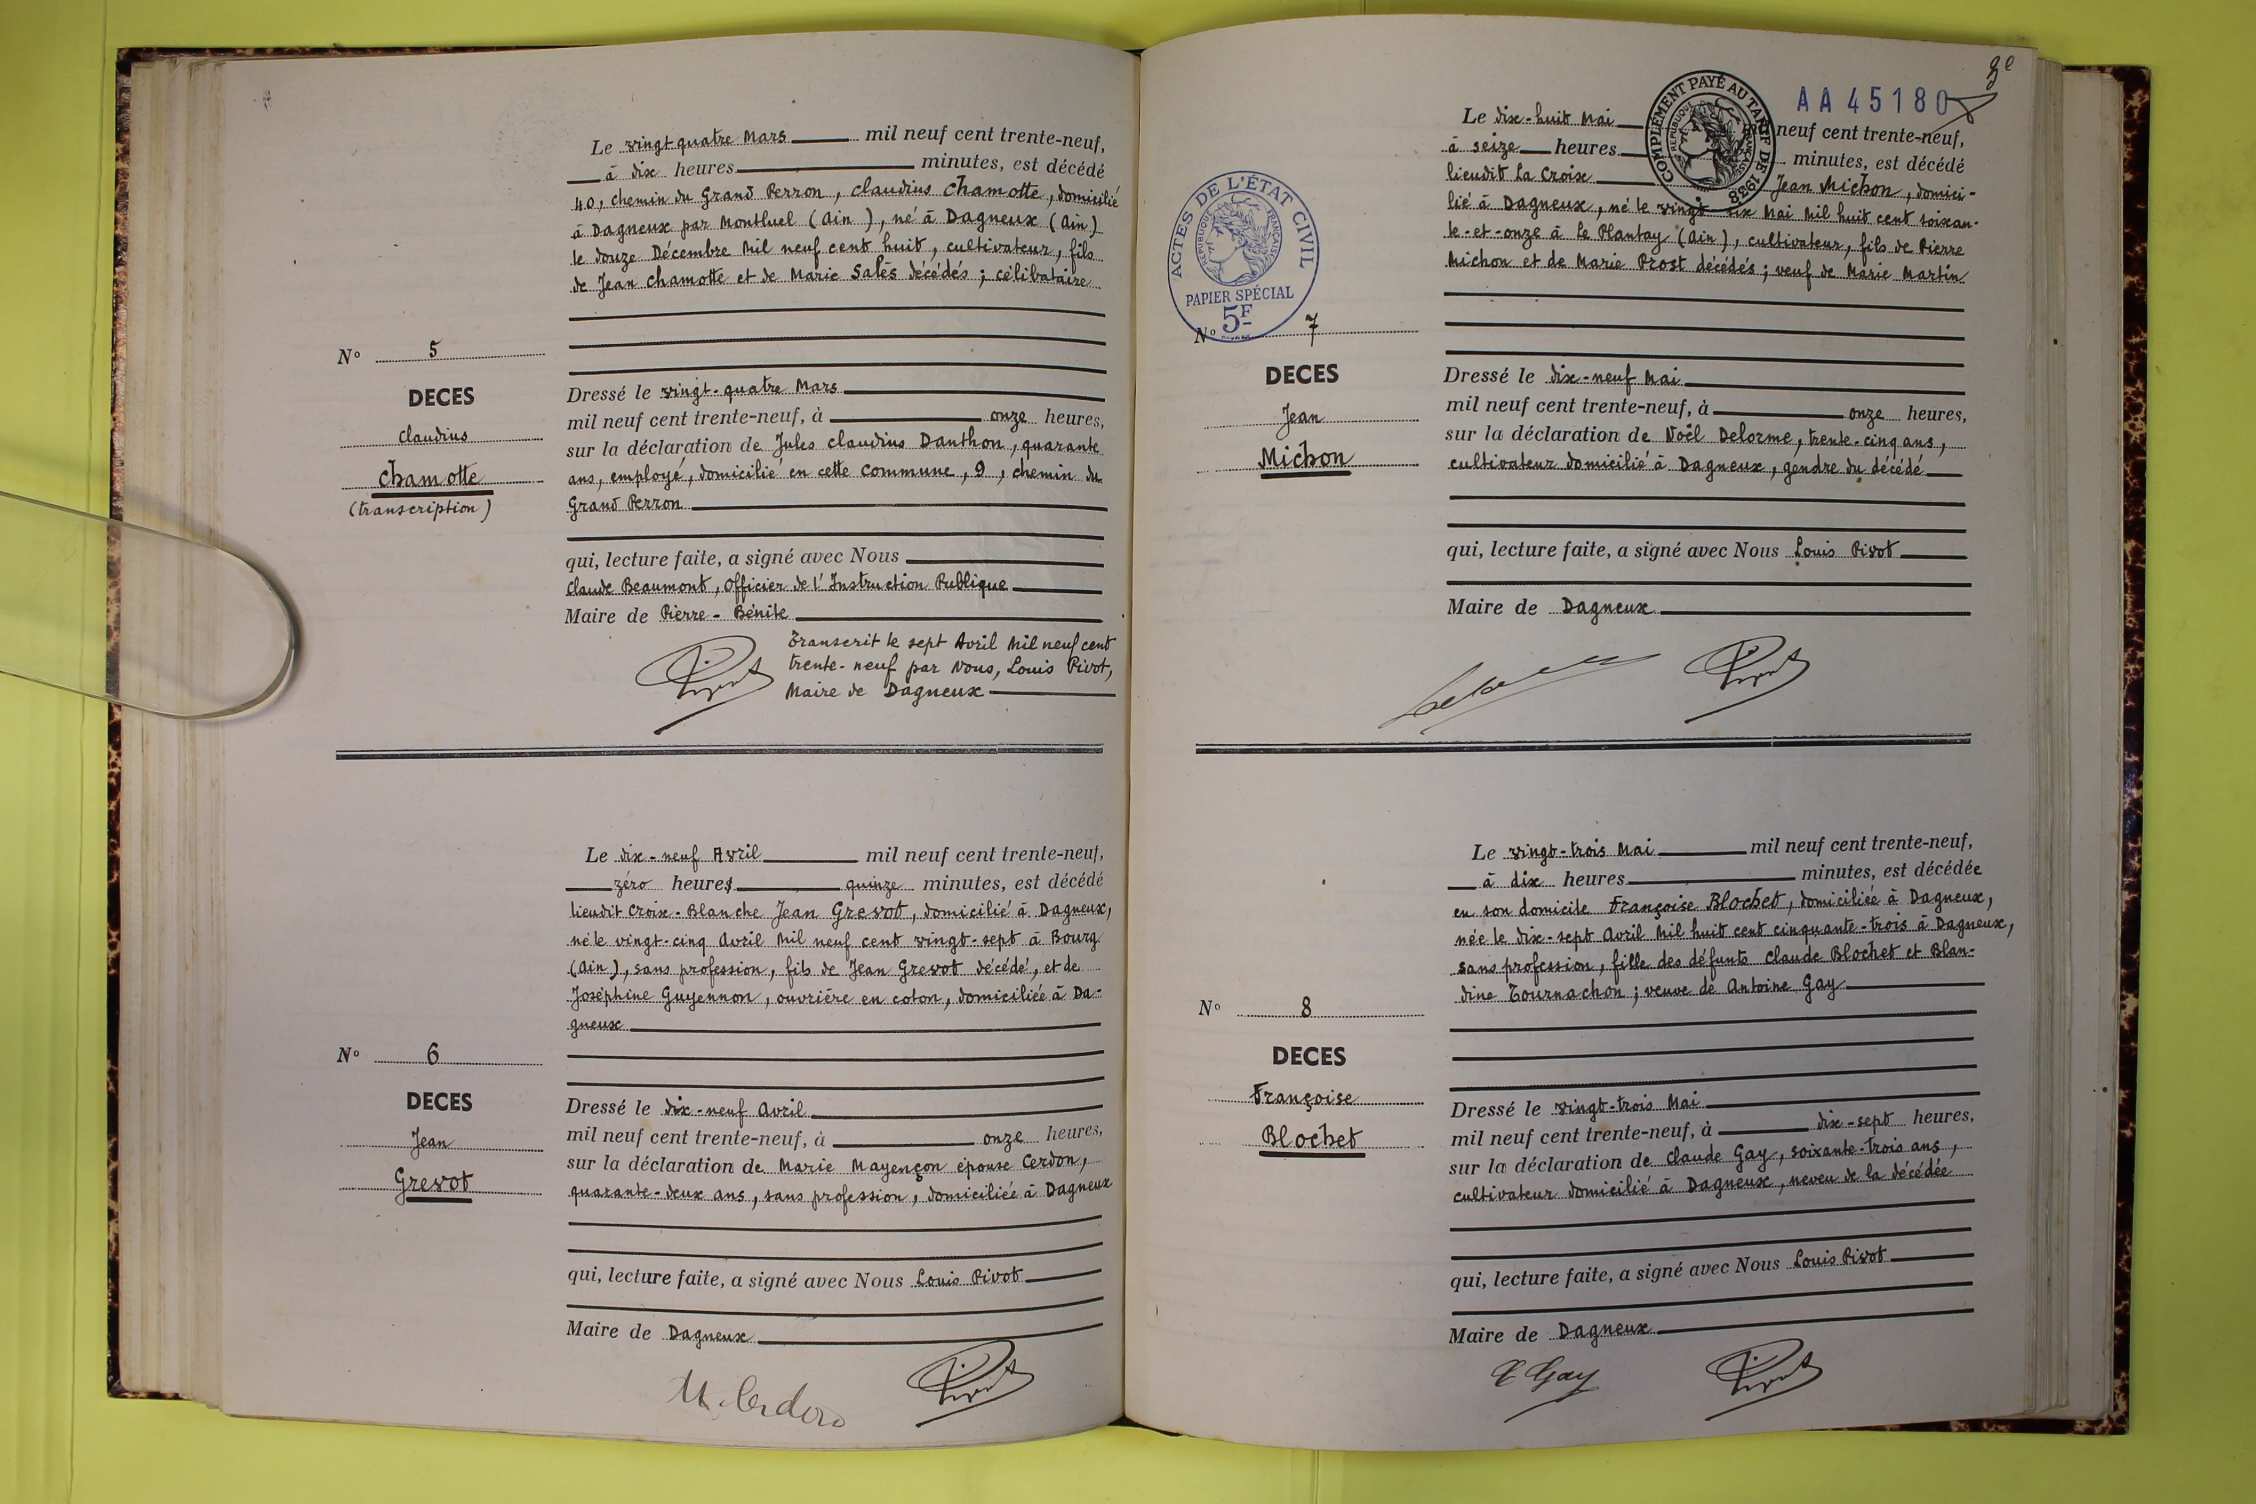 Le vingt quatre Mars mil neuf cent trente-neuf,
à dix heures minutes, est décédé
40, chemin du Grand Perron, Claudius Chamotte, domicilié
à Dagneux par Montluel (Ain), né à Dagneux (Ain)
le douze Décembre Mil neuf cent huit, cultivateur, fils
de Jean Chamotte et de Marie Salès décédés ; célibataire
N° 5
DECES
Claudius
Chamotte
(transcription)
Dressé le vingt-quatre Mars
mil neuf cent trente-neuf, à onze heures,
sur la déclaration de Jules Claudius Danthon, quarante
ans, employé, domicilié en cette Commune, 9, chemin du
Grand Perron
qui, lecture faite, a signé avec Nous
Claude Beaumont, Officier de l'Instruction Publique
Maire de Pierre-Bénite
Transcrit le sept Avril Mil neuf cent
trente-neuf par Nous, Louis Pivot,
Maire de Dagneux
Pivot
Le dix-neuf Avril mil neuf cent trente-neuf,
zéro heures quinze minutes, est décédé
lieudit Croix-Blanche Jean Grevot, domicilié à Dagneux,
né le vingt-cinq Avril Mil neuf cent vingt-sept à Bourg
(Ain), sans profession, fils de Jean Grevot décédé, et de
Joséphine Guyennon, ouvrière en coton, domiciliée à Da-
gneux
N° 6
DECES
Jean
Grevot
Dressé le dix-neuf Avril
mil neuf cent trente-neuf, à onze heures,
sur la déclaration de Marie Mayençon épouse Cerdon,
quarante-deux ans, sans profession, domiciliée à Dagneux
qui, lecture faite, a signé avec Nous Louis Pivot
Maire de Dagneux
M. Cerdon
Pivot
3e
AA45180
COMPLÉMENT PAYÉ AU TARIF DE 1938
RÉPUBLIQUE FRANÇAISE
Le dix-huit Mai neuf cent trente-neuf,
à seize heures minutes, est décédé
lieudit La Croix Jean Michon, domici-
lié à Dagneux, né le vingt six Mai Mil huit cent soixan-
te-et-onze à Le Plantay (Ain), cultivateur, fils de Pierre
Michon et de Marie Prost décédés ; veuf de Marie Martin
ACTES DE L'ÉTAT CIVIL
RÉPUBLIQUE FRANÇAISE
PAPIER SPÉCIAL
5F
N° 7
DECES
Jean
Michon
Dressé le dix-neuf Mai
mil neuf cent trente-neuf, à onze heures,
sur la déclaration de Noël Delorme, trente-cinq ans,
cultivateur domicilié à Dagneux, gendre du décédé
qui, lecture faite, a signé avec Nous Louis Pivot
Maire de Dagneux
Pivot
Le vingt-trois Mai mil neuf cent trente-neuf,
à dix heures minutes, est décédée
en son domicile Françoise Blochet, domiciliée à Dagneux,
née le dix-sept Avril Mil huit cent cinquante-trois à Dagneux,
sans profession, fille des défunts Claude Blochet et Blan-
dine Tournachon ; veuve de Antoine Gay
N° 8
DECES
Françoise
Blochet
Dressé le vingt-trois Mai
mil neuf cent trente-neuf, à dix-sept heures,
sur la déclaration de Claude Gay, soixante-trois ans,
cultivateur domicilié à Dagneux, neveu de la décédée
qui, lecture faite, a signé avec Nous Louis Pivot
Maire de Dagneux
C Gay
Pivot